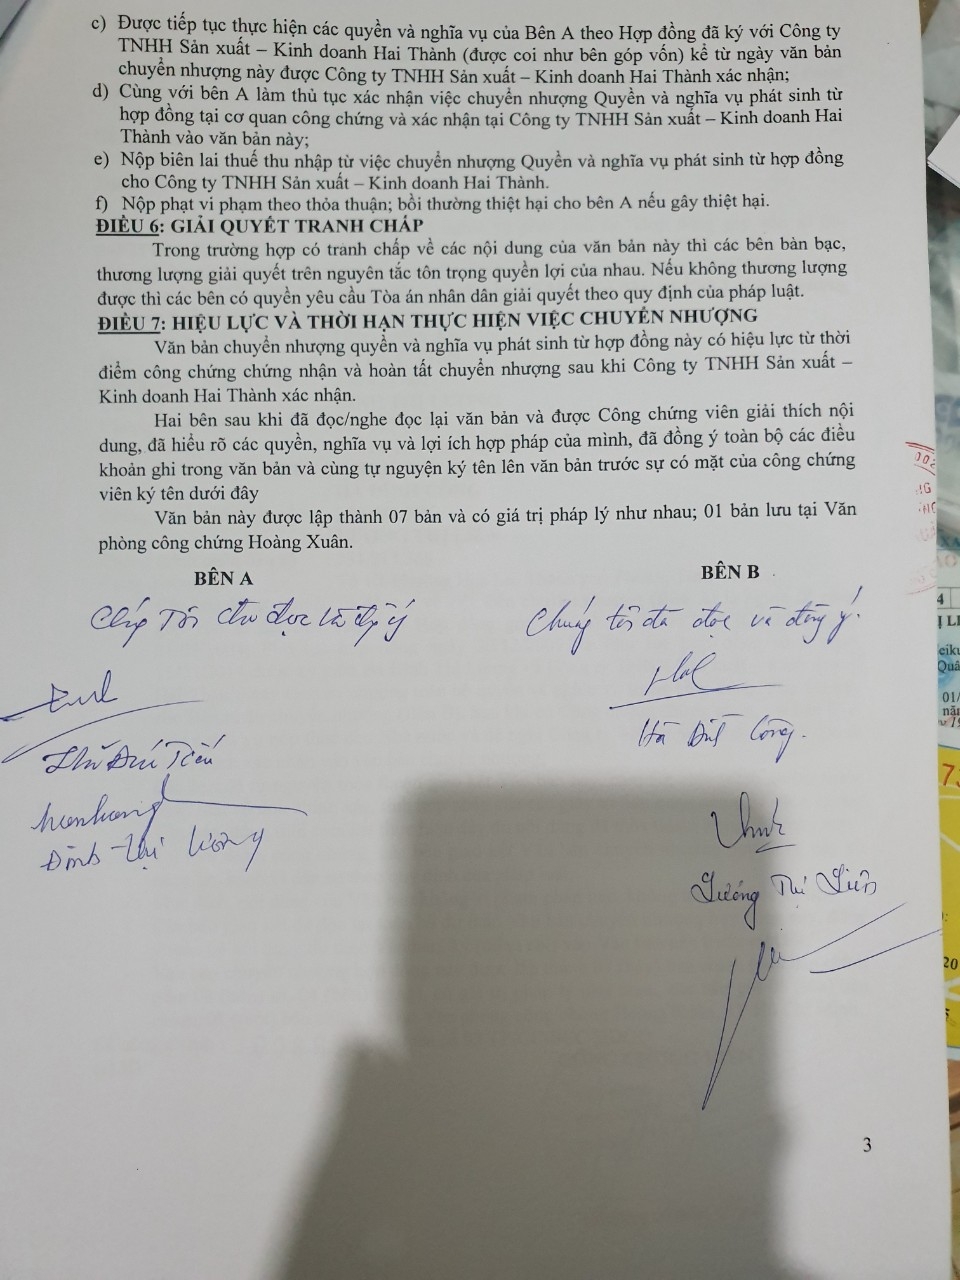 c) Được tiếp tục thực hiện các quyền và nghĩa vụ của Bên A theo Hợp đồng đã ký với Công ty
TNHH Sản xuất – Kinh doanh Hai Thành (được coi như bên góp vốn) kể từ ngày văn bản
chuyển nhượng này được Công ty TNHH Sản xuất – Kinh doanh Hai Thành xác nhận;
d) Cùng với bên A làm thủ tục xác nhận việc chuyển nhượng Quyền và nghĩa vụ phát sinh từ
hợp đồng tại cơ quan công chứng và xác nhận tại Công ty TNHH Sản xuất – Kinh doanh Hai
Thành vào văn bản này;
e) Nộp biên lai thuế thu nhập từ việc chuyển nhượng Quyền và nghĩa vụ phát sinh từ hợp đồng
cho Công ty TNHH Sản xuất – Kinh doanh Hai Thành.
f) Nộp phạt vi phạm theo thỏa thuận; bồi thường thiệt hại cho bên A nếu gây thiệt hại.
ĐIỀU 6: GIẢI QUYẾT TRANH CHẤP
Trong trường hợp có tranh chấp về các nội dung của văn bản này thì các bên bàn bạc,
thương lượng giải quyết trên nguyên tắc tôn trọng quyền lợi của nhau. Nếu không thương lượng
được thì các bên có quyền yêu cầu Tòa án nhân dân giải quyết theo quy định của pháp luật.
ĐIỀU 7: HIỆU LỰC VÀ THỜI HẠN THỰC HIỆN VIỆC CHUYỂN NHƯỢNG
Văn bản chuyển nhượng quyền và nghĩa vụ phát sinh từ hợp đồng này có hiệu lực từ thời
điểm công chứng chứng nhận và hoàn tất chuyển nhượng sau khi Công ty TNHH Sản xuất –
Kinh doanh Hai Thành xác nhận.
Hai bên sau khi đã đọc/nghe đọc lại văn bản và được Công chứng viên giải thích nội
dung, đã hiểu rõ các quyền, nghĩa vụ và lợi ích hợp pháp của mình, đã đồng ý toàn bộ các điều
khoản ghi trong văn bản và cùng tự nguyện ký tên lên văn bản trước sự có mặt của công chứng
viên ký tên dưới đây
Văn bản này được lập thành 07 bản và có giá trị pháp lý như nhau; 01 bản lưu tại Văn
phòng công chứng Hoàng Xuân.
BÊN A
BÊN B
Chúng tôi đã đọc và đồng ý.
Đinh thị
Thị Liên
3